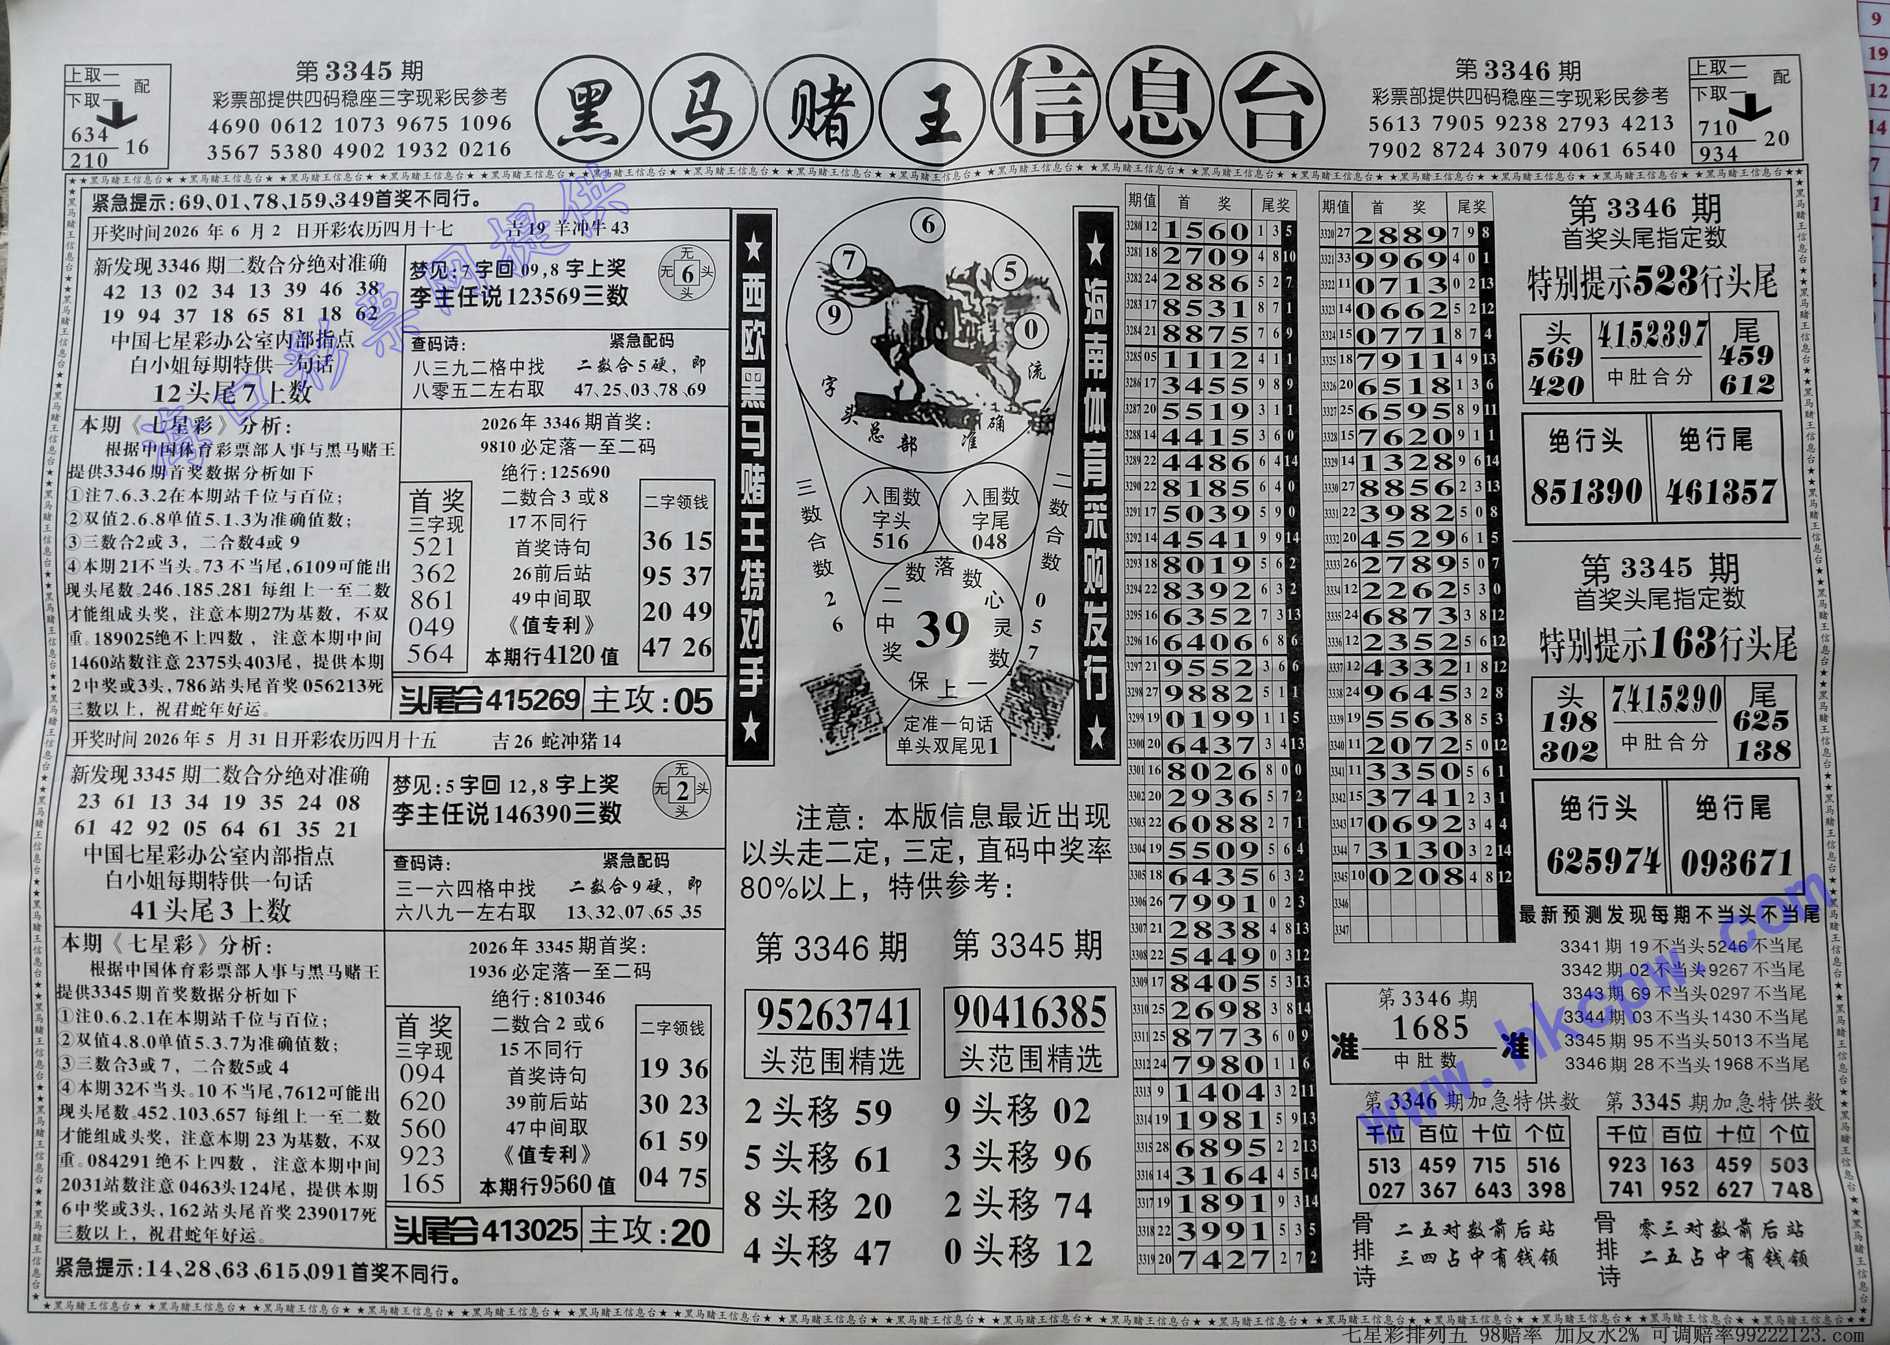 黑马赌王信息台
上取一 配
下取一
634
210 16
第3345期
彩票部提供四码稳座三字现彩民参考
4690 0612 1073 9675 1096
3567 5380 4902 1932 0216
第3346期
彩票部提供四码稳座三字现彩民参考
5613 7905 9238 2793 4213
7902 8724 3079 4061 6540
上取一 配
下取一
710
934 20
紧急提示:69、01、78、159、349首奖不同行。
开奖时间2026年6月2日开彩农历四月十七 吉19 羊冲牛43
新发现3346期二数合分绝对准确
42 13 02 34 13 39 46 38
19 94 37 18 65 81 18 62
中国七星彩办公室内部指点
白小姐每期特供一句话
12头尾7上数
梦见:7字回09,8字上奖
李主任说123569三数
无
无 6 头
头
查码诗:
八三九二格中找
八零五二左右取
紧急配码
二数合5硬,即
47、25、03、78、69
本期《七星彩》分析:
根据中国体育彩票部人事与黑马赌王
提供3346期首奖数据分析如下
①注7.6.3.2在本期站千位与百位;
②双值2.6.8单值5.1.3为准确值数;
③三数合2或3,二合数4或9
④本期21不当头。73不当尾,6109可能出
现头尾数。246、185、281 每组上一至二数
才能组成头奖,注意本期27为基数,不双
重。189025绝不上四数,注意本期中间
1460站数注意2375头403尾,提供本期
2中奖或3头,786站头尾首奖056213死
三数以上,祝君蛇年好运。
2026年3346期首奖:
9810必定落一至二码
绝行:125690
二数合3或8
17不同行
首奖诗句
26前后站
49中间取
《值专利》
本期行4120值
首奖
三字现
521
362
861
049
564
二字领钱
36 15
95 37
20 49
47 26
头尾合415269 主攻:05
开奖时间2026年5月31日开彩农历四月十五 吉26 蛇冲猪14
新发现3345期二数合分绝对准确
23 61 13 34 19 35 24 08
61 42 92 05 64 61 35 21
中国七星彩办公室内部指点
白小姐每期特供一句话
41头尾3上数
梦见:5字回12,8字上奖
李主任说146390三数
无
无 2 头
头
查码诗:
三一六四格中找
六八九一左右取
紧急配码
二数合9硬,即
13、32、07、65、35
本期《七星彩》分析:
根据中国体育彩票部人事与黑马赌王
提供3345期首奖数据分析如下
①注0.6.2.1在本期站千位与百位;
②双值4.8.0单值5.3.7为准确值数;
③三数合3或7,二合数5或4
④本期32不当头。10不当尾,7612可能出
现头尾数。452、103、657 每组上一至二数
才能组成头奖,注意本期23为基数,不双
重。084291绝不上四数,注意本期中间
2031站数注意0463头124尾,提供本期
6中奖或3头,162站头尾首奖239017死
三数以上,祝君蛇年好运。
2026年3345期首奖:
1936必定落一至二码
绝行:810346
二数合2或6
15不同行
首奖诗句
39前后站
47中间取
《值专利》
本期行9560值
首奖
三字现
094
620
560
923
165
二字领钱
19 36
30 23
61 59
04 75
头尾合413025 主攻:20
紧急提示:14、28、63、615、091首奖不同行。
★西欧黑马赌王特对手★
★海南体育采购发行★
6
7
5
9
0
字头总部
准确流
三数合数26
二数合数057
入围数
字头
516
入围数
字尾
048
数落数
二中奖
心灵数
39
保上一
定准一句话
单头双尾见1
注意:本版信息最近出现
以头走二定,三定,直码中奖率
80%以上,特供参考:
第3346期
95263741
头范围精选
2头移59
5头移61
8头移20
4头移47
第3345期
90416385
头范围精选
9头移02
3头移96
2头移74
0头移12
期值 首奖 尾奖
3280 12 1560 1 3 5
3281 18 2709 4 8 10
3282 24 2886 5 2 7
3283 17 8531 8 7 1
3284 21 8875 7 6 9
3285 05 1112 4 1 1
3286 17 3455 9 8 9
3287 20 5519 3 1 1
3288 14 4415 3 6 0
3289 22 4486 6 4 14
3290 22 8185 6 4 0
3291 17 5039 5 9 0
3292 14 4541 9 9 14
3293 18 8019 5 6 2
3294 22 8392 6 3 2
3295 16 6352 7 3 13
3296 16 6406 6 8 6
3297 21 9552 3 6 6
3298 27 9882 5 1 1
3299 19 0199 1 1 5
3300 20 6437 3 4 13
3301 16 8026 8 0 0
3302 20 2936 5 7 2
3303 22 6088 2 7 1
3304 19 5509 5 6 4
3305 18 6435 6 3 2
3306 26 7991 0 2 3
3307 21 2838 4 8 13
3308 22 5449 0 3 12
3309 17 8405 5 3 13
3310 25 2698 3 8 14
3311 25 8773 6 0 9
3312 24 7980 1 1 6
3313 9 1404 3 2 11
3314 19 1981 5 9 13
3315 28 6895 2 2 13
3316 14 3164 4 5 14
3317 19 1891 9 3 14
3318 22 3991 5 3 5
3319 20 7427 2 7 2
期值 首奖 尾奖
3320 27 2889 7 9 8
3321 33 9969 4 0 1
3322 11 0713 0 2 13
3323 14 0662 5 2 12
3324 15 0771 8 7 4
3325 18 7911 4 9 13
3326 20 6518 1 3 6
3327 25 6595 8 9 11
3328 15 7620 9 1 1
3329 14 1328 9 6 14
3330 27 8856 2 3 13
3331 22 3982 5 0 8
3332 20 4529 6 1 5
3333 26 2789 5 0 7
3334 12 2262 5 3 0
3335 24 6873 3 8 12
3336 12 2352 5 6 12
3337 12 4332 1 8 12
3338 24 9645 3 2 8
3339 19 5563 8 5 3
3340 11 2072 5 0 12
3341 11 3350 5 6 1
3342 15 3741 2 3 1
3343 17 0692 3 4 4
3344 7 3130 3 2 14
3345 10 0208 4 8 12
3346
3347
第3346期
首奖头尾指定数
特别提示523行头尾
头
569
420
4152397
中肚合分
尾
459
612
绝行头
851390
绝行尾
461357
第3345期
首奖头尾指定数
特别提示163行头尾
头
198
302
7415290
中肚合分
尾
625
138
绝行头
625974
绝行尾
093671
最新预测发现每期不当头不当尾
3341期19不当头5246不当尾
3342期02不当头9267不当尾
3343期69不当头0297不当尾
3344期03不当头1430不当尾
3345期95不当头5013不当尾
3346期28不当头1968不当尾
第3346期
准 1685 准
中肚数
第3346期加急特供数
千位 百位 十位 个位
513 459 715 516
027 367 643 398
骨排诗
二五对数前后站
三四占中有钱领
第3345期加急特供数
千位 百位 十位 个位
923 163 459 503
741 952 627 748
骨排诗
零三对数前后站
二五占中有钱领
海口彩票网提供
www.hkcpw.com
七星彩排列五 98赔率 加反水2% 可调赔率99222123.com